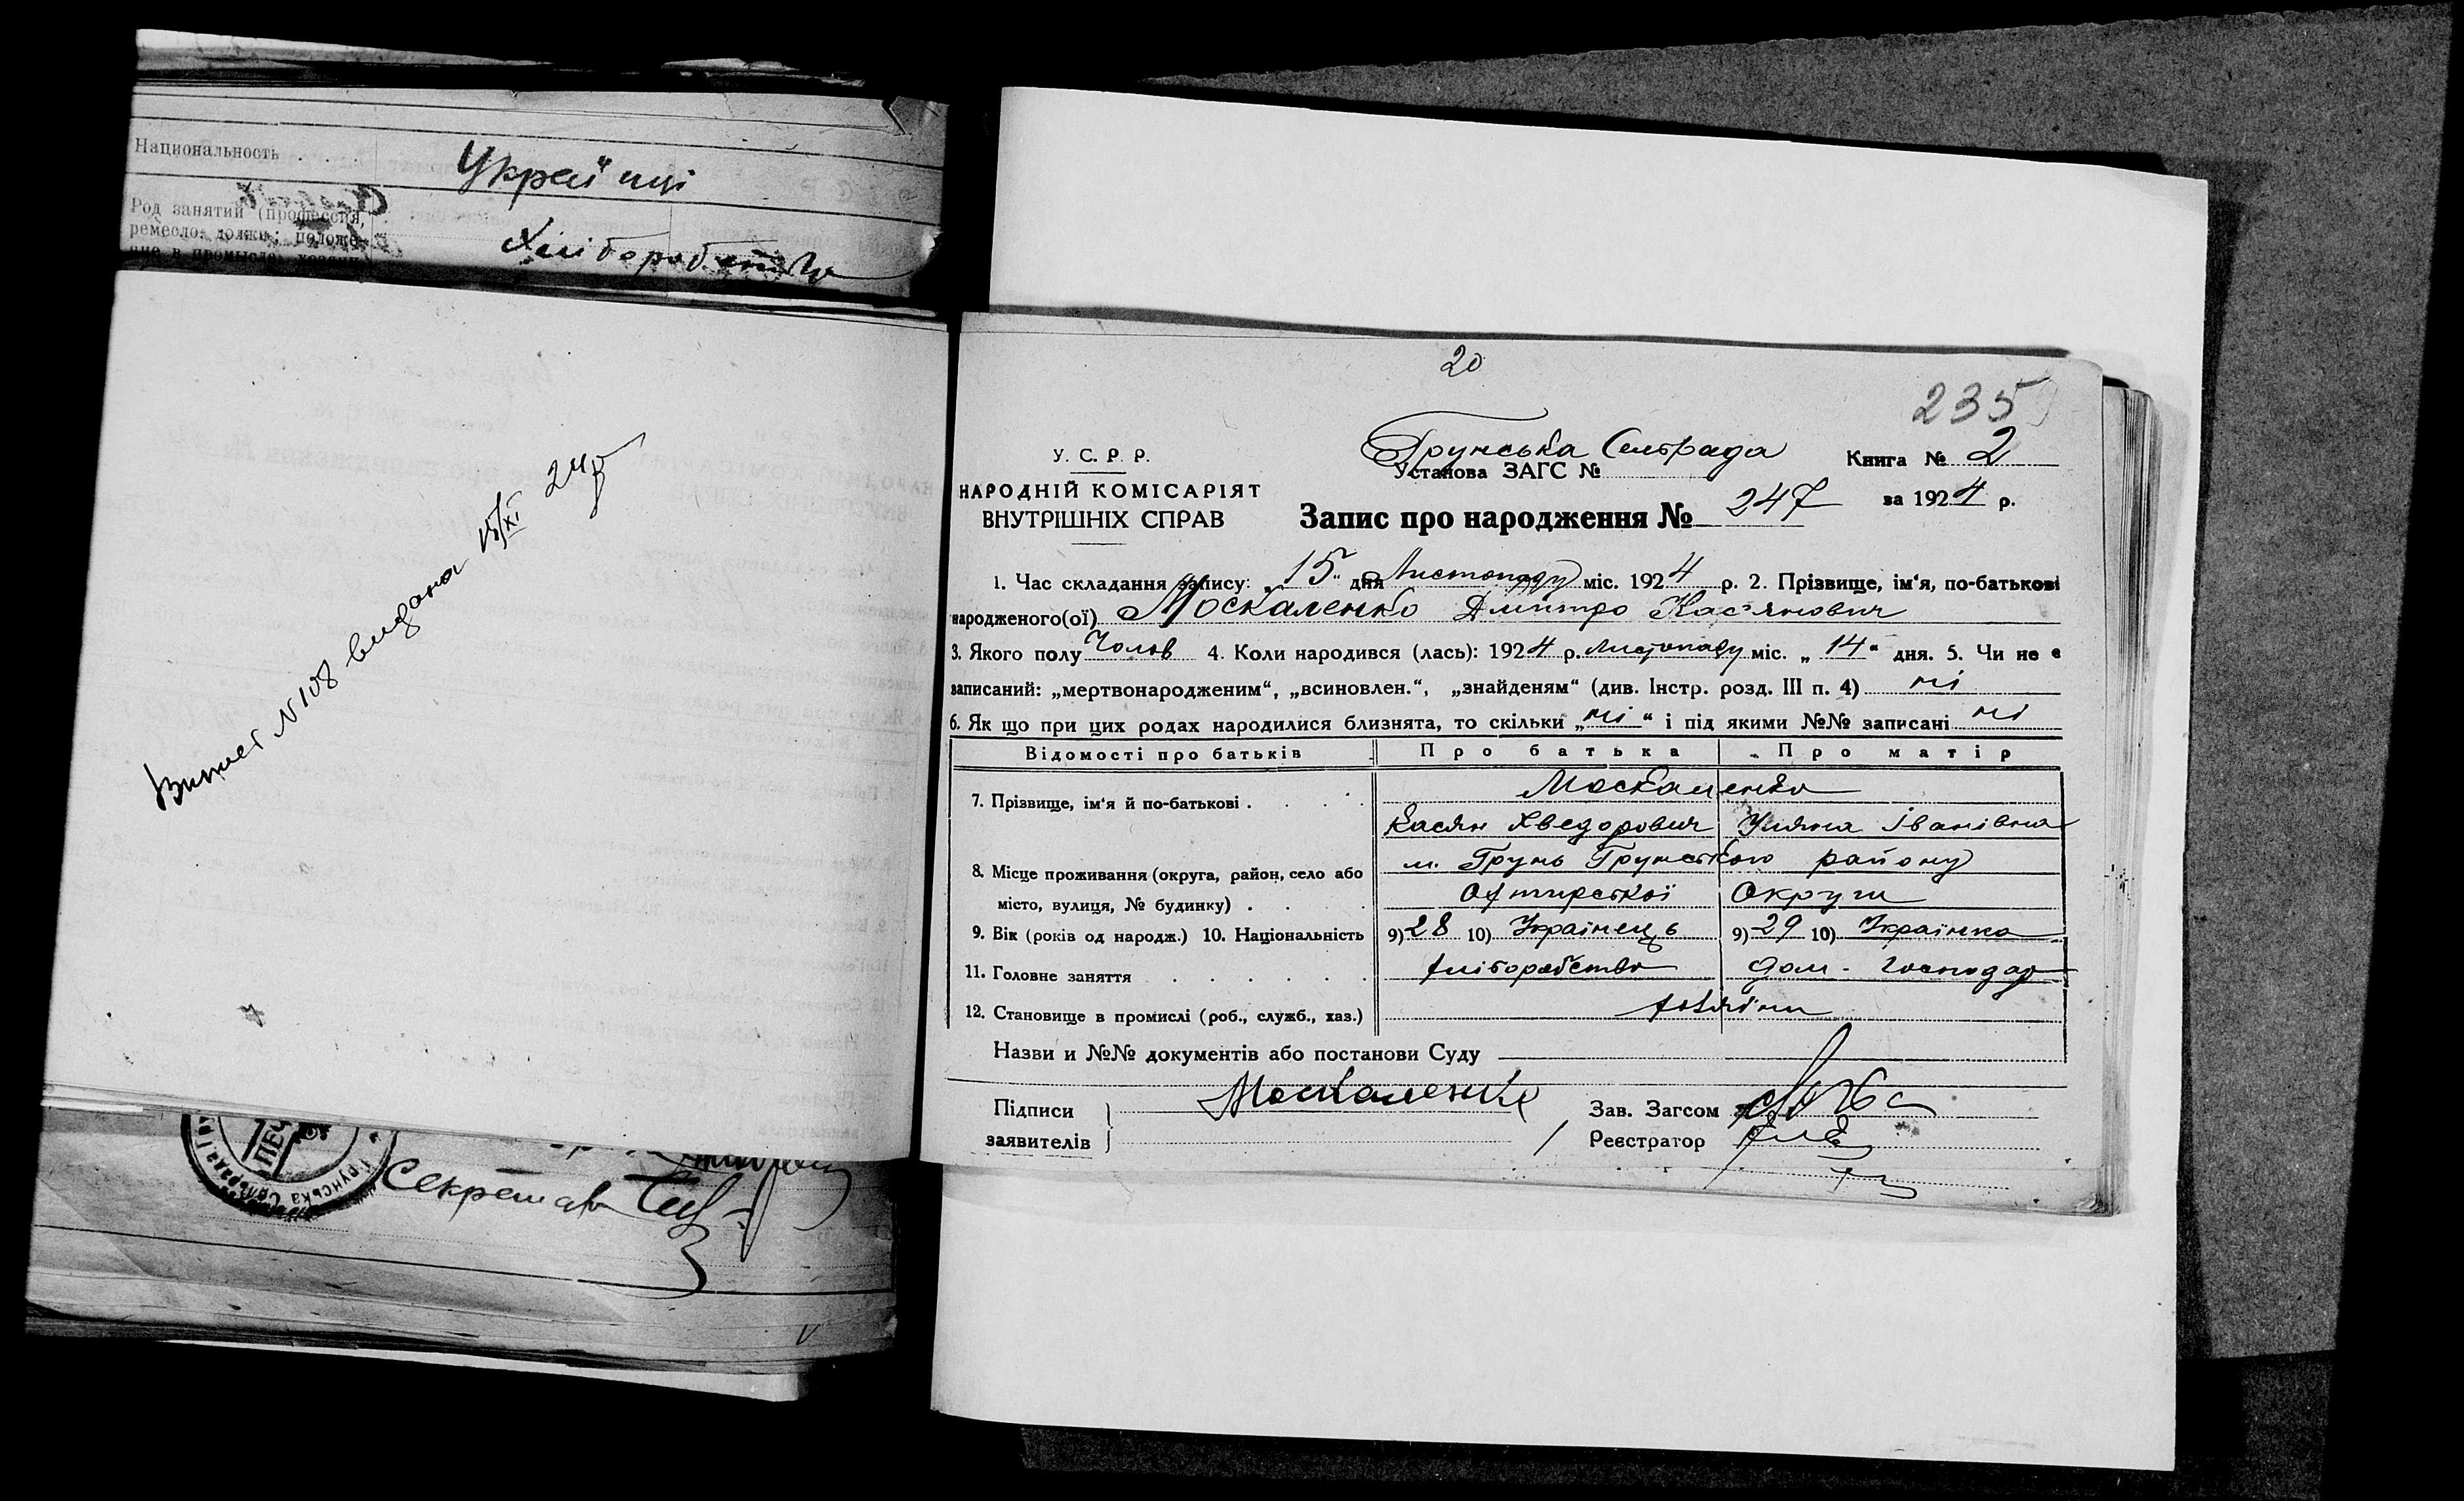 Национальность . . Украї"нці
Род занятий (профессия,
ремесло, должн.; положе-
ние в промысле, хозяин Хліборобство
Випис N 108 видана 15/XI 24 р
ПЕЧ
Грунська Сільрада
Секретар
V
20
235
У. С. Р. Р.
НАРОДНІЙ КОМІСАРІЯТ
ВНУТРІШНІХ СПРАВ
Грунська Сельрада
Установа ЗАГС №
Книга № 2
Запис про народження № 247
за 1924 р.
1. Час складання запису: „15" дня Листопаду міс. 1924 р. 2. Прізвище, ім'я, по-батькові
народженого(ої) Москаленко Дмитро Кас'янович
3. Якого полу Чолов 4. Коли народився (лась): 1924 р. листопаду міс. „14" дня. 5. Чи не є
записаний: „мертвонародженим", „всиновлен.", „знайденям" (див. Інстр. розд. III п. 4) ні
6. Як що при цих родах народилися близнята, то скільки „ні" і під якими №№ записані ні
Відомості про батьків Про батька Про матір
7. Прізвище, ім'я й по-батькові . . . . Москаленко
Касян Хведорович Уляна Іванівна
8. Місце проживання (округа, район, село або м. Грунь Грунського району
місто, вулиця, № будинку) . . . . Охтирської Округи
9. Вік (років од народж.) 10. Національність 9) 28 10) Українець 9) 29 10) Українка
11. Головне заняття . . . . . . хліборобство дом-господар
12. Становище в промислі (роб., служб., хаз.) хазяіни
Назви и №№ документів або постанови Суду
Підписи
заявителів
Москаленко
Зав. Загсом
Реєстратор